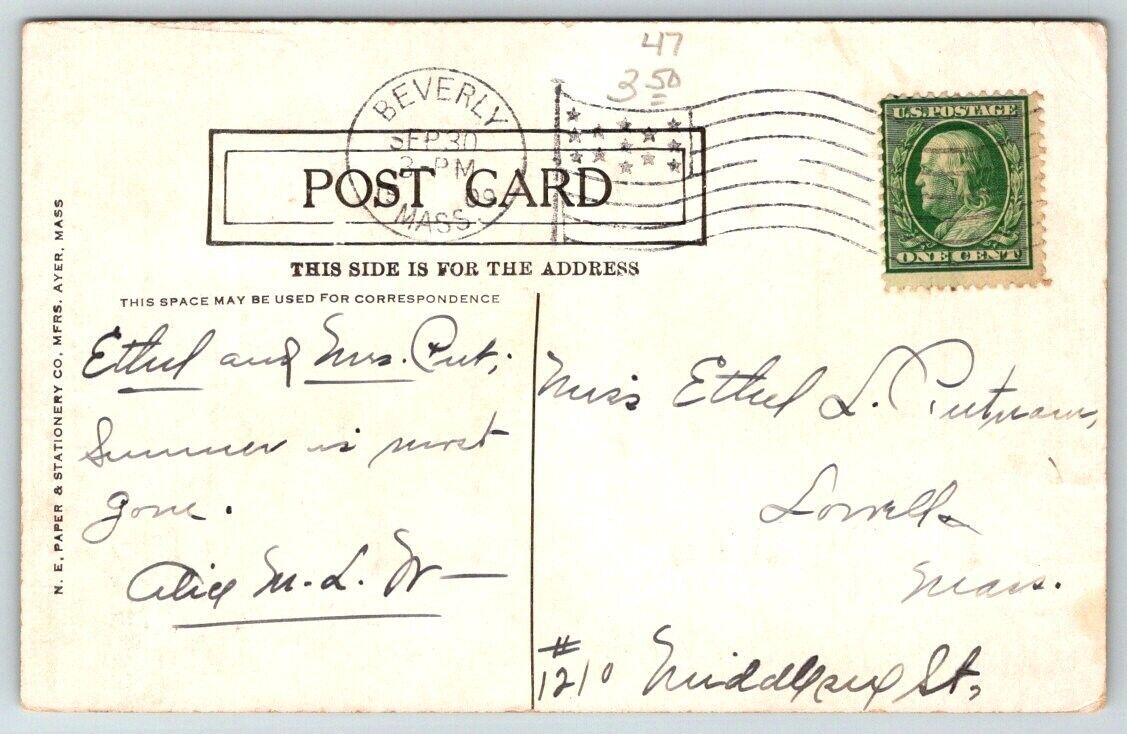 47
3 50
BEVERLY
SEP 30
3-PM
09
MASS.
U.S. POSTAGE
ONE CENT
POST CARD
THIS SIDE IS FOR THE ADDRESS
THIS SPACE MAY BE USED FOR CORRESPONDENCE
N. E. PAPER & STATIONERY CO. MFRS. AYER, MASS
Ethel and Mrs. Put;
Summer is most
gone.
Alice M. L. W—
Miss Ethel L. Putnam,
Lowell
Mass.
# 1210 Middlesex St,